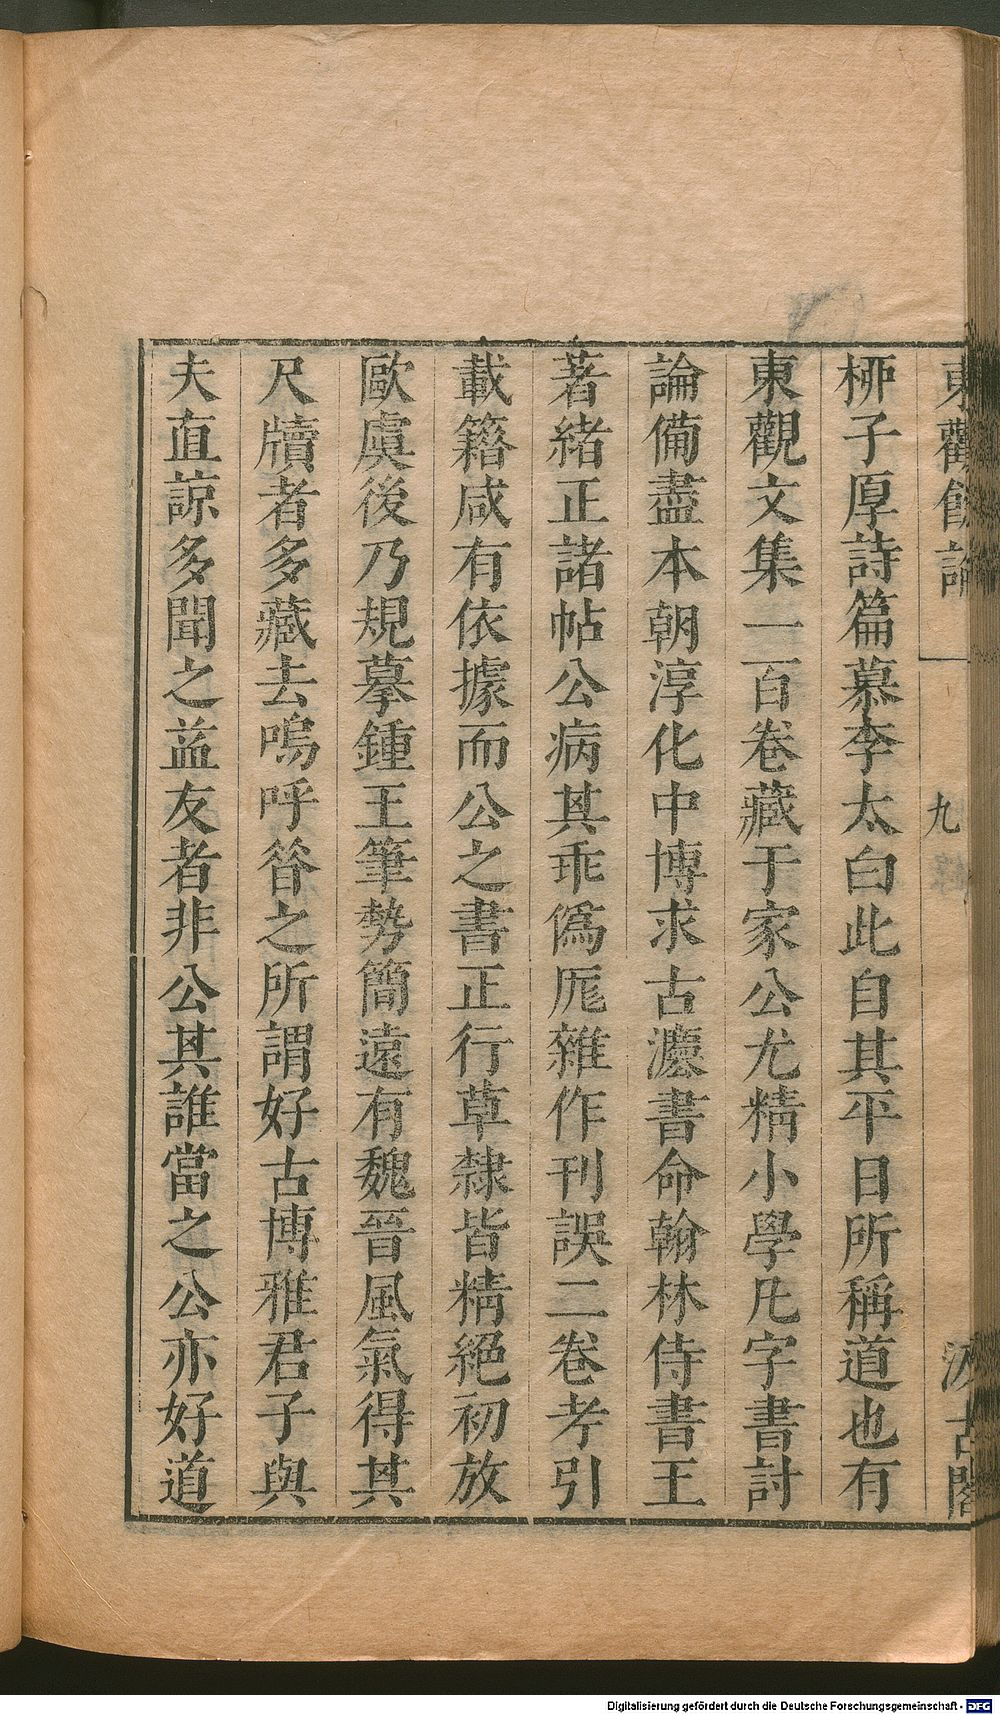 東觀餘論 九 汲古閣
桺子厚詩篇慕李太白此自其平日所稱道也有
東觀文集一百卷藏于家公尤精小學凡字書討
論備盡本朝淳化中博求古灋書命翰林侍書王
著緒正諸帖公病其乖僞厖雜作刊誤二卷考引
載籍咸有依據而公之書正行草隸皆精絕初放
歐虞後乃規摹鍾王筆勢簡遠有魏晉風氣得其
尺牘者多藏去嗚呼昝之所謂好古博雅君子與
夫直諒多聞之益友者非公其誰當之公亦好道
Digitalisierung gefördert durch die Deutsche Forschungsgemeinschaft - DFG